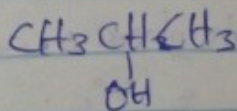 CH3CHCH3
|
OH